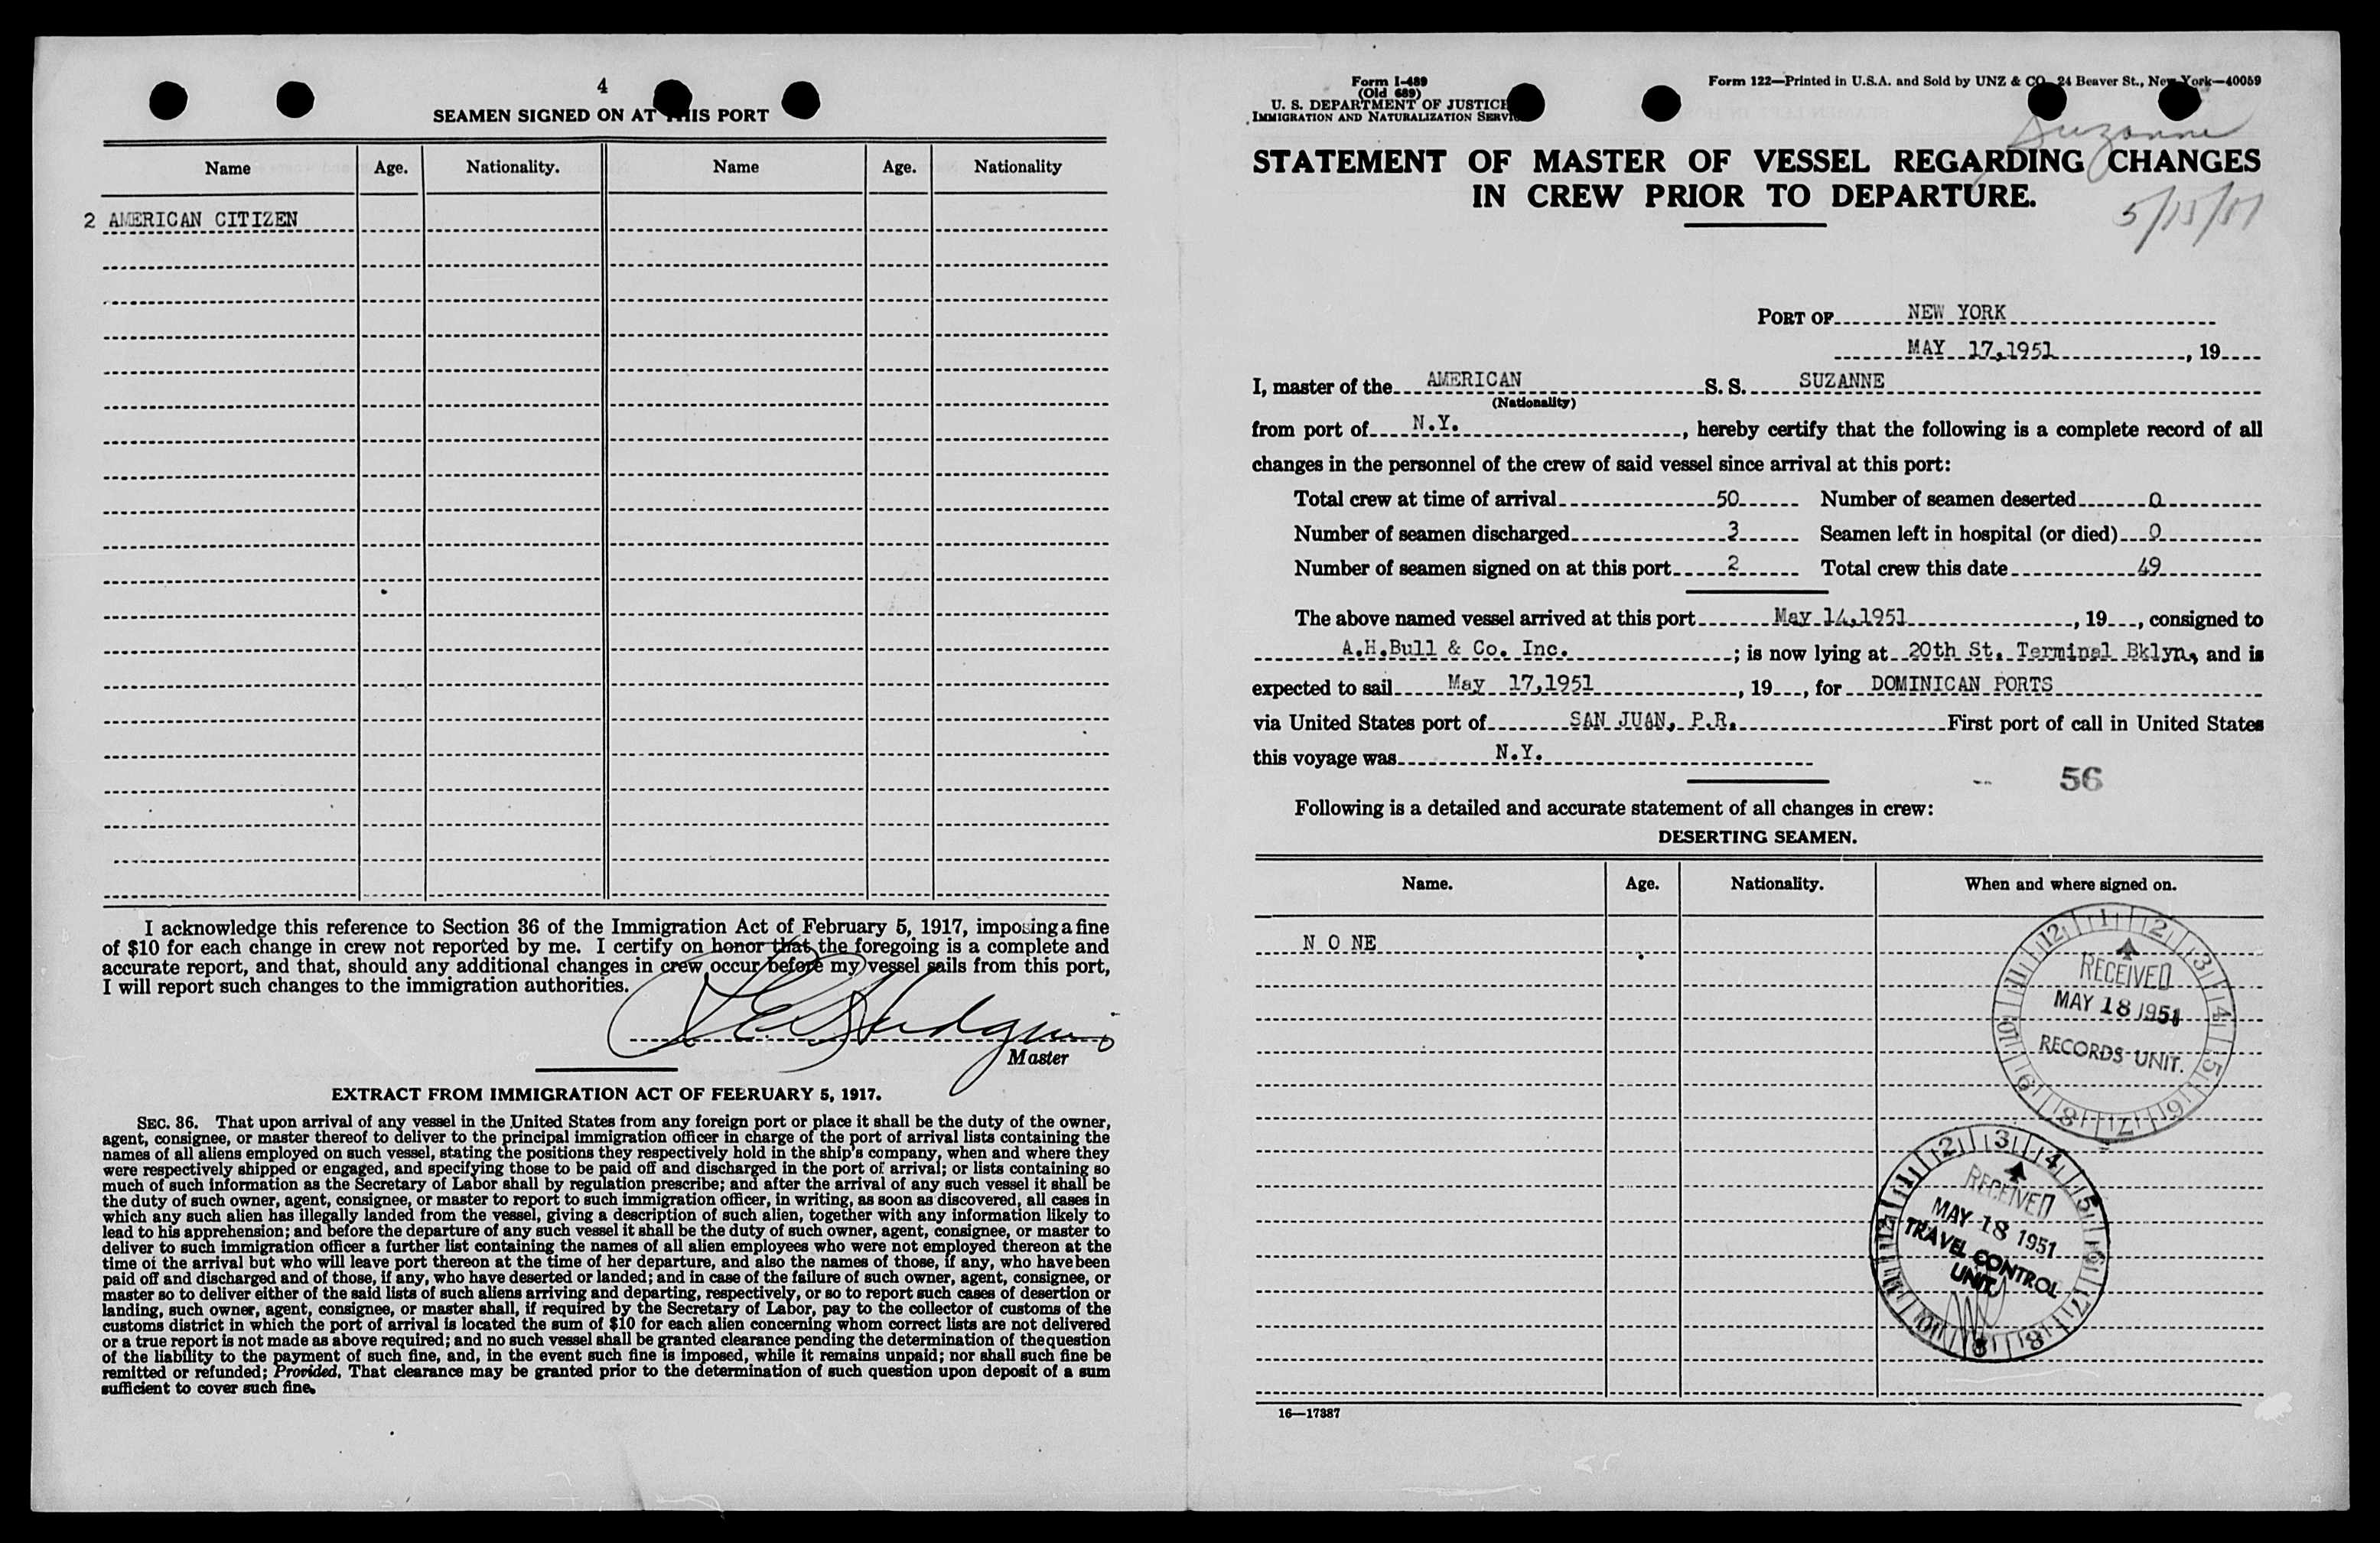 4
SEAMEN SIGNED ON AT THIS PORT
Name Age. Nationality. Name Age. Nationality
2 AMERICAN CITIZEN
I acknowledge this reference to Section 36 of the Immigration Act of February 5, 1917, imposing a fine
of $10 for each change in crew not reported by me. I certify on honor that the foregoing is a complete and
accurate report, and that, should any additional changes in crew occur before my vessel sails from this port,
I will report such changes to the immigration authorities.
Master
EXTRACT FROM IMMIGRATION ACT OF FEBRUARY 5, 1917.
SEC. 36. That upon arrival of any vessel in the United States from any foreign port or place it shall be the duty of the owner,
agent, consignee, or master thereof to deliver to the principal immigration officer in charge of the port of arrival lists containing the
names of all aliens employed on such vessel, stating the positions they respectively hold in the ship's company, when and where they
were respectively shipped or engaged, and specifying those to be paid off and discharged in the port of arrival; or lists containing so
much of such information as the Secretary of Labor shall by regulation prescribe; and after the arrival of any such vessel it shall be
the duty of such owner, agent, consignee, or master to report to such immigration officer, in writing, as soon as discovered, all cases in
which any such alien has illegally landed from the vessel, giving a description of such alien, together with any information likely to
lead to his apprehension; and before the departure of any such vessel it shall be the duty of such owner, agent, consignee, or master to
deliver to such immigration officer a further list containing the names of all alien employees who were not employed thereon at the
time of the arrival but who will leave port thereon at the time of her departure, and also the names of those, if any, who have been
paid off and discharged and of those, if any, who have deserted or landed; and in case of the failure of such owner, agent, consignee, or
master so to deliver either of the said lists of such aliens arriving and departing, respectively, or so to report such cases of desertion or
landing, such owner, agent, consignee, or master shall, if required by the Secretary of Labor, pay to the collector of customs of the
customs district in which the port of arrival is located the sum of $10 for each alien concerning whom correct lists are not delivered
or a true report is not made as above required; and no such vessel shall be granted clearance pending the determination of the question
of the liability to the payment of such fine, and, in the event such fine is imposed, while it remains unpaid; nor shall such fine be
remitted or refunded; Provided, That clearance may be granted prior to the determination of such question upon deposit of a sum
sufficient to cover such fine.
Form I-489
(Old 689)
U. S. DEPARTMENT OF JUSTICE
IMMIGRATION AND NATURALIZATION SERVICE
Form 122—Printed in U.S.A. and Sold by UNZ & CO. 24 Beaver St., New York—40059
Suzanne
STATEMENT OF MASTER OF VESSEL REGARDING CHANGES
IN CREW PRIOR TO DEPARTURE.
5/15/51
PORT OF NEW YORK
MAY 17,1951, 19
I, master of the AMERICAN S. S. SUZANNE
(Nationality)
from port of N.Y., hereby certify that the following is a complete record of all
changes in the personnel of the crew of said vessel since arrival at this port:
Total crew at time of arrival 50 Number of seamen deserted 0
Number of seamen discharged 3 Seamen left in hospital (or died) 0
Number of seamen signed on at this port 2 Total crew this date 49
The above named vessel arrived at this port May 14,1951, 19, consigned to
A.H.Bull & Co. Inc.; is now lying at 20th St. Terminal Bklyn, and is
expected to sail May 17,1951, 19, for DOMINICAN PORTS
via United States port of SAN JUAN, P.R. First port of call in United States
this voyage was N.Y.
56
Following is a detailed and accurate statement of all changes in crew:
DESERTING SEAMEN.
Name. Age. Nationality. When and where signed on.
N O NE
12 1 2 3 4 5 6 7 8 9 10 11
RECEIVED
MAY 18 1951
RECORDS UNIT.
12 1 2 3 4 5 6 7 8 9 10 11
RECEIVED
MAY 18 1951
TRAVEL CONTROL
UNIT
16—17387